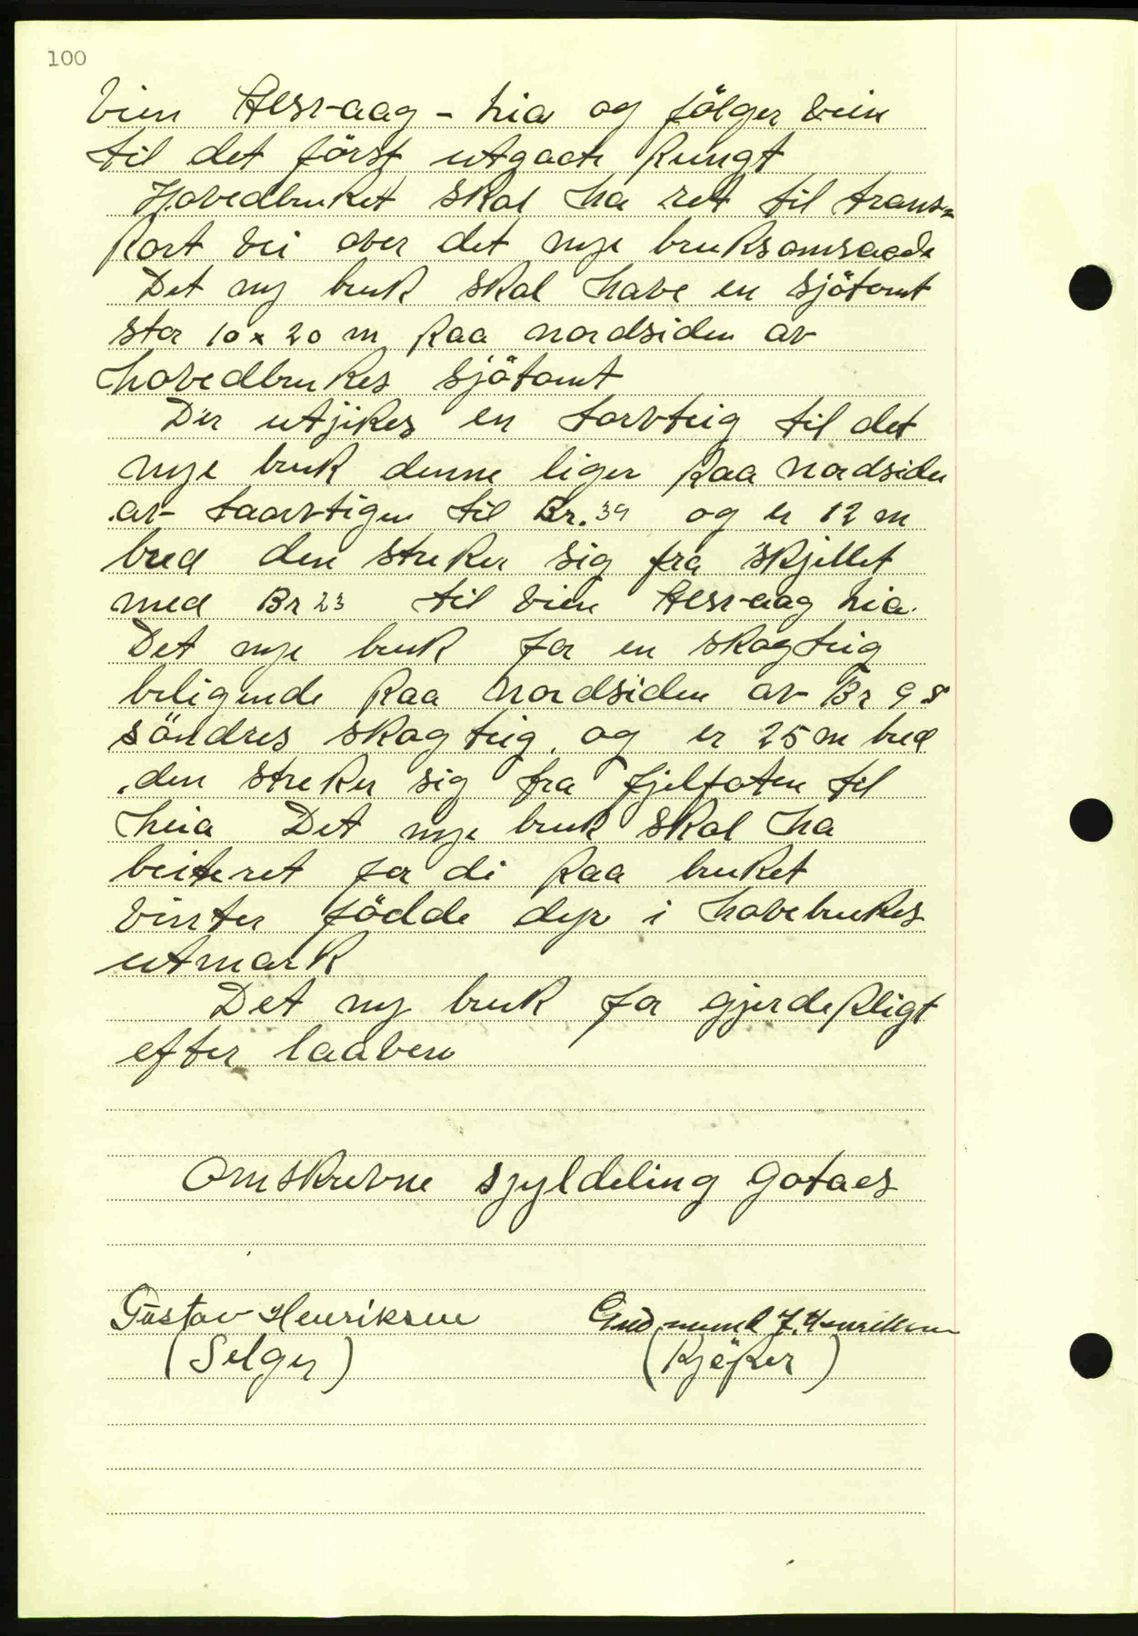 100
Veien Hesvaag - Lia og fölger Veien
til det först utgaate Pungt
Hovedbruket skal ha ret til trans=
port Vei over det nye bruksomraade
Det ny bruk skal have en Sjötomt
stor 10 x 20 m paa nordsiden av
hovedbrukes sjötomt
Der utsjikes en torvteig til det
nye bruk denne liger paa Nordsiden
av taarvtigen til Br. 39 og er 12 m
bred den streker sig fra skjillet
med Br 23 til Veien Hesvaag Lia.
Det nye bruk for en skogteig
beligende paa Nordsiden av Br 98
söndres skogteig. og er 25 m bred
den streker sig fra fjelfoten til
heia Det nye bruk skal ha
beiteret for di paa bruket
Vinter födde dyr i hovebrukes
utmark
Det ny bruk for gjerdepligt
efter laaven
Omskrevne sjyldeling Gotaes
Gustav Henriksen
Gudmund J. Henriksen
(Selger)
(Kjöper)